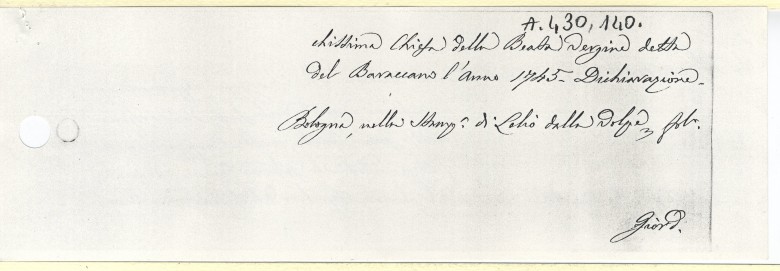 A.430,140.
chissima Chiesa della Beata Vergine detta
del Baraccano l'Anno 1745- Dichiarazione-
Bologna, nella Stamp.ª di Lelio dalla Volpe, fol.
Giord.